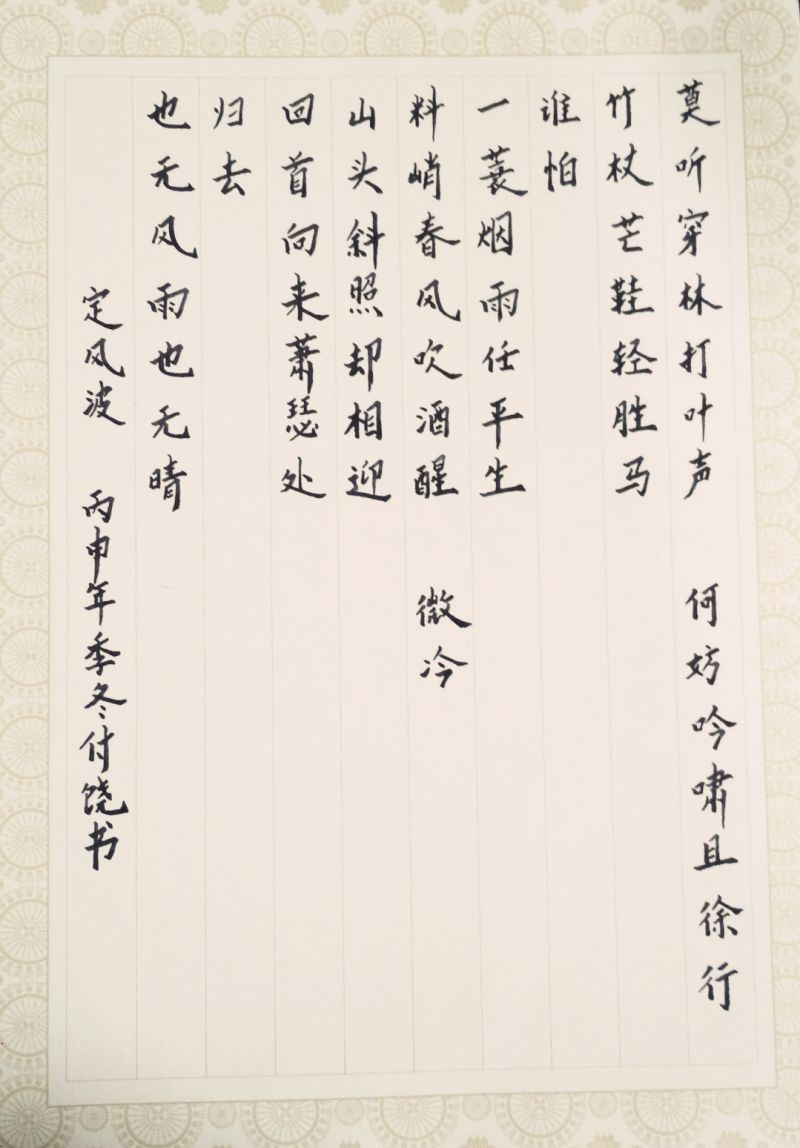 莫听穿林打叶声 何妨吟啸且徐行
竹杖芒鞋轻胜马
谁怕
一蓑烟雨任平生
料峭春风吹酒醒 微冷
山头斜照却相迎
回首向来萧瑟处
归去
也无风雨也无晴
定风波 丙申年季冬付饶书